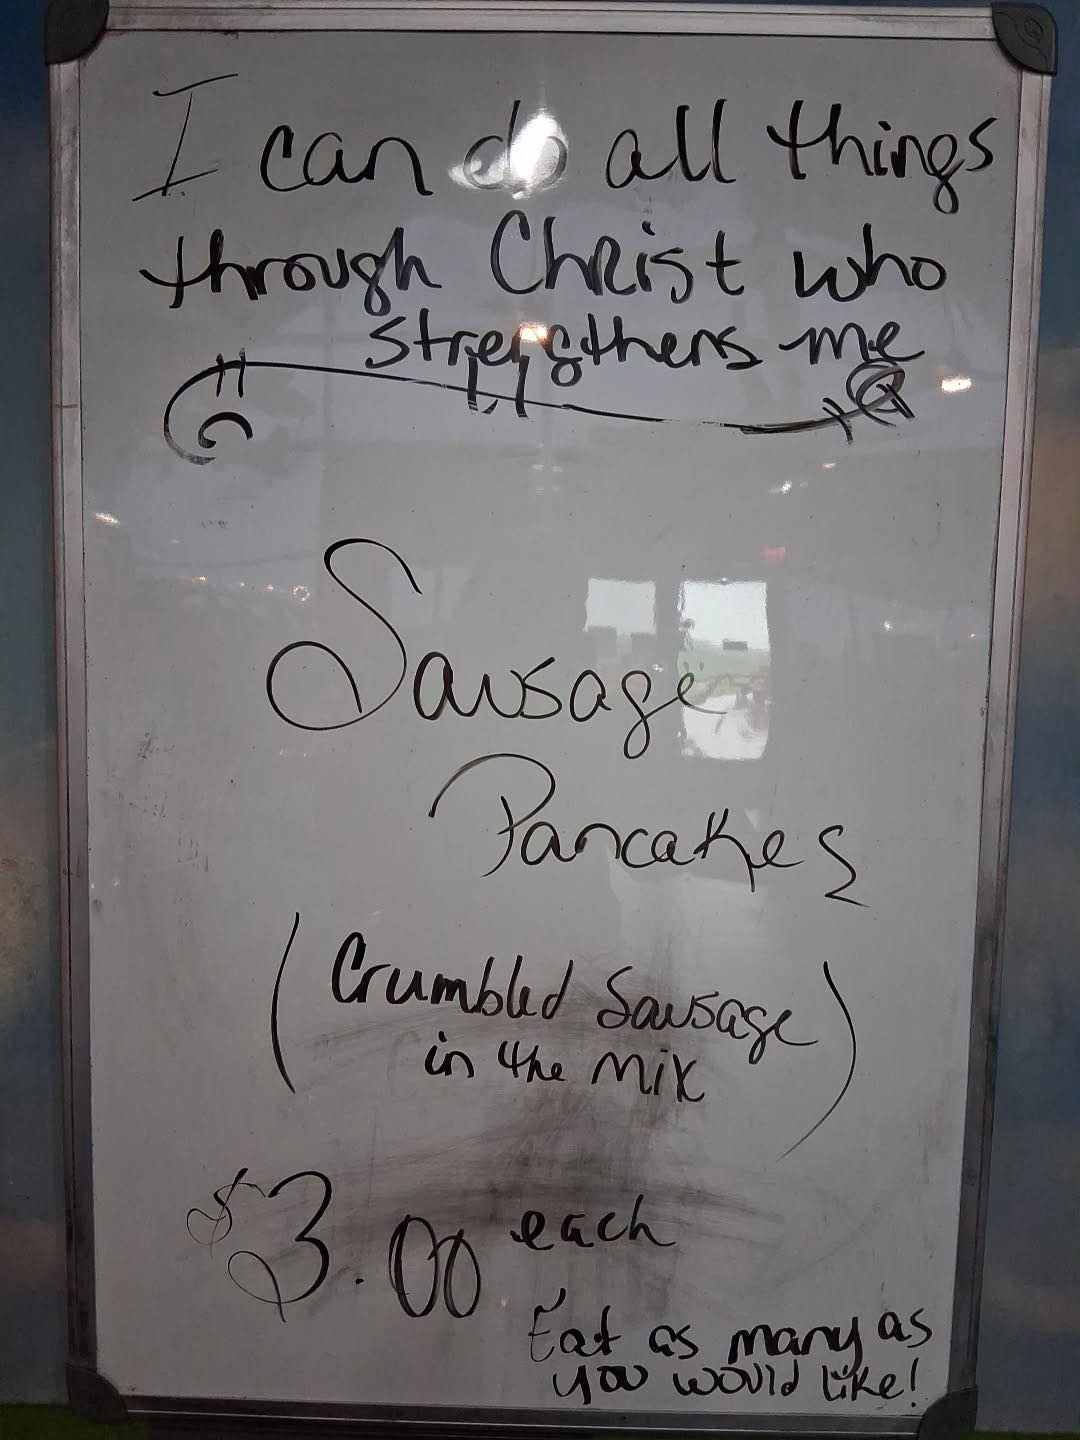 I can do all things
through Christ who
strengthens me
Sausage
Pancakes
(Crumbled Sausage
in the mix)
$3.00 each
Eat as many as
you would like!